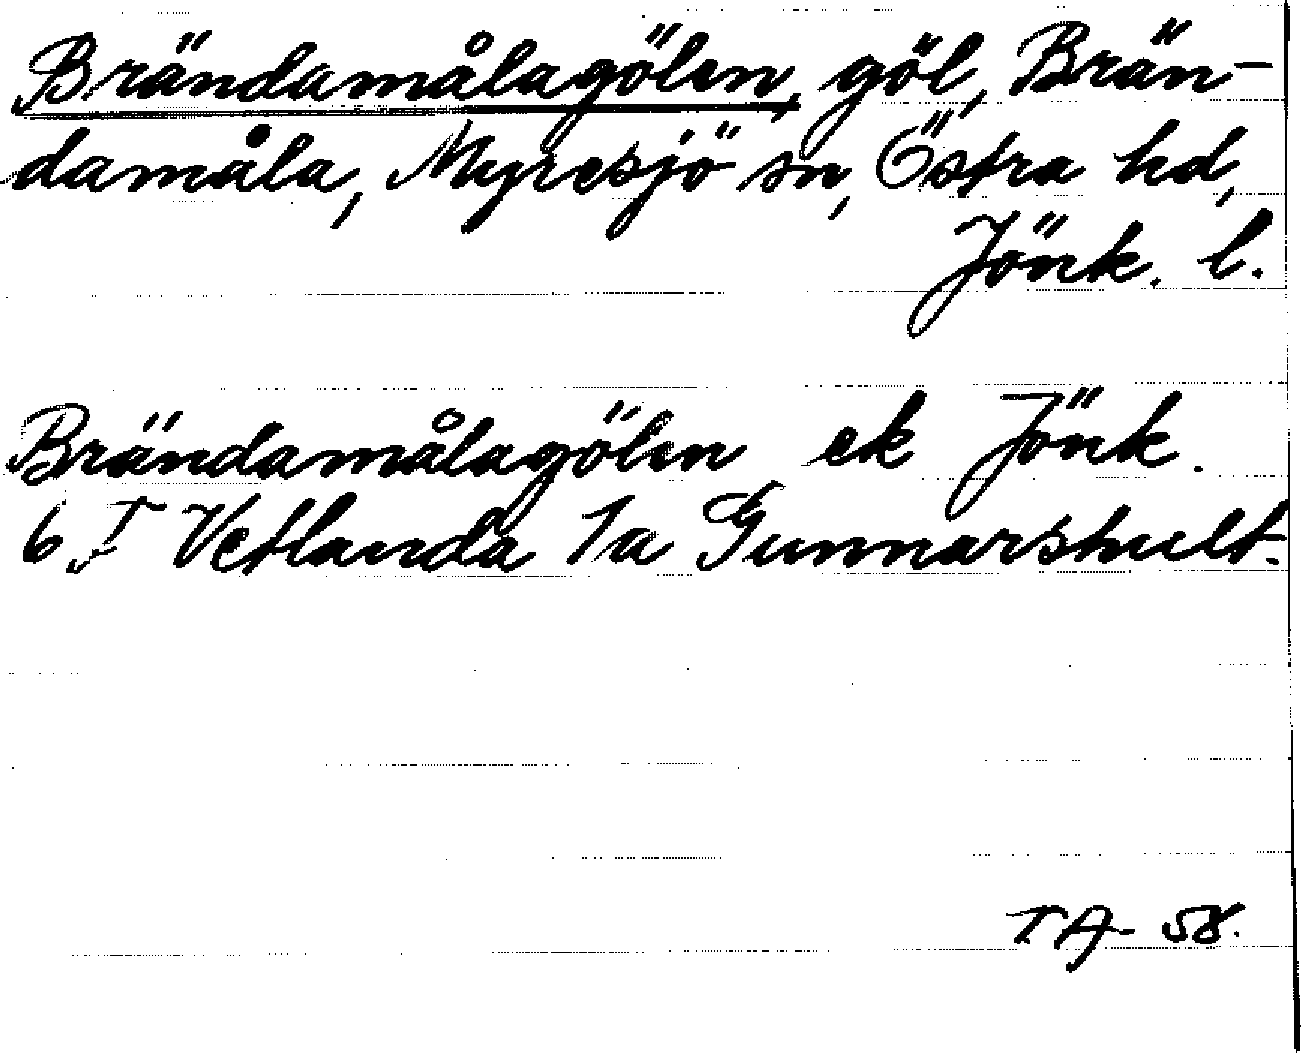 Brändamålagölen, göl, Brän-
damåla, Myresjö sn, Östra hd,
Jönk. l.
Brändamålagölen ek Jönk.
6 I Vetlanda 1a Gunnarshult.
TA- 58.